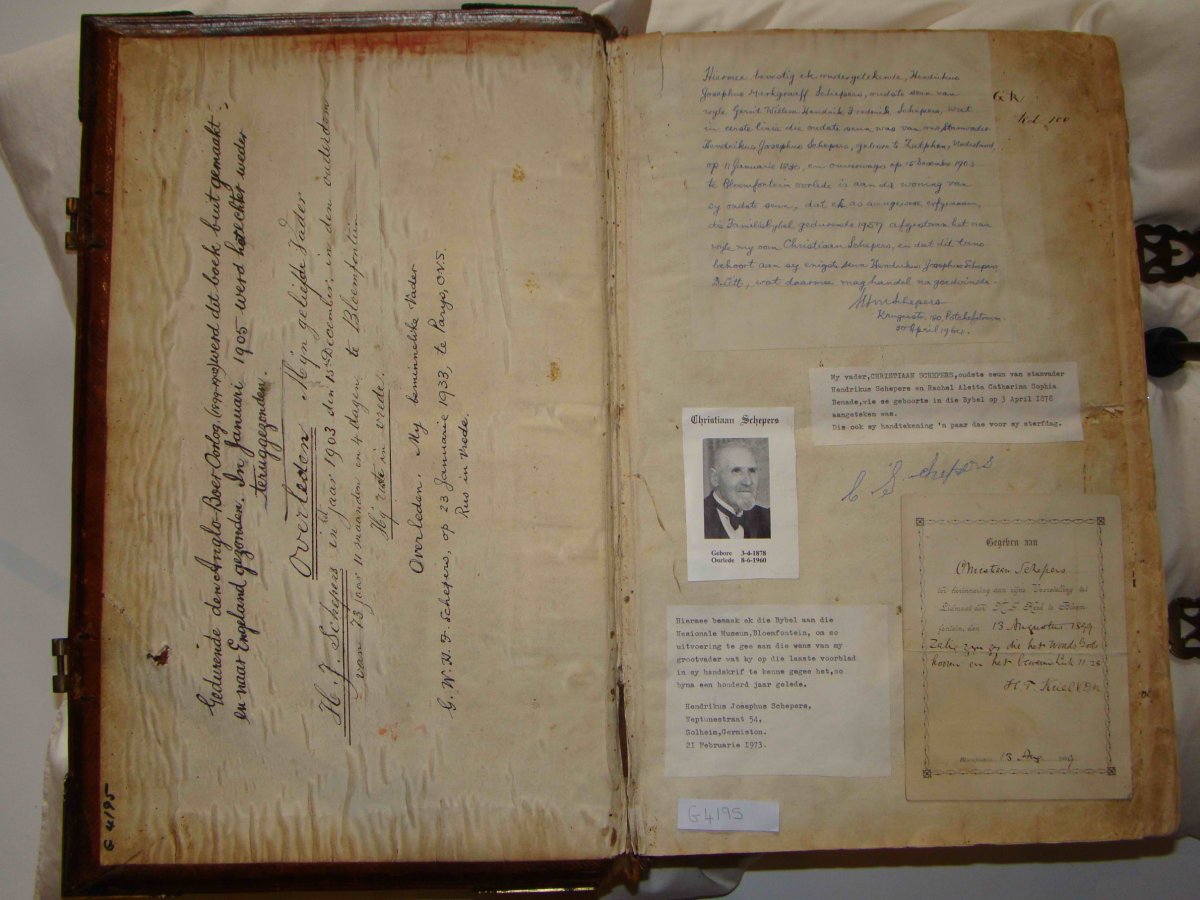 Gedurende den Anglo-Boer Oorlog. (1899-1902) werd dit boek buit gemaakt
en naar Engeland gezonden. In Januari 1905 werd het echter weder
teruggezonden.
Overleden Mijn geliefde Vader
H. J. Schepers in 't jaar 1903 den 15den December: in den ouderdom
van 73 jaar 11 maanden en 4 dagen, te Bloemfontein
Hij ruste in vrede.
Overleden. My beminnelike Vader
G. W. H. F. Schepers, op 23 Januarie 1933, te Parys, O.V.S.
Rus in Vrede.
G 4195
Hiermee bevestig ek ondergetekende, Hendrikus
Josephus Markgraaff Schepers, oudste seun van
wyle Gerrit Willem Hendrik Frederik Schepers, wat
in eerste linie die oudste seun was van ons Stamvader
Hendrikus Josephus Schepers, gebore te Zutphen, Nederland,
op 11 Januarie 1830, en oorlede op 15 Desember 1903
te Bloemfontein oorlede is aan die woning van
sy oudste seun, dat ek as aangewese erfgenaam,
die Familiebybel gedurende 1957 afgestaan het aan
wyle my oom Christiaan Schepers, en dat dit
behoort aan sy enigste seun Hendrikus Josephus Schepers
wat daarmee mag handel na goedvinde.
HJM Schepers
Krugerstr. 120, Potchefstroom.
30 April 1964.
My vader,CHRISTIAAN SCHEPERS,oudste seun van stamvader
Hendrikus Schepers en Rachel Aletta Catharina Sophia
Benade,wie se geboorte in die Bybel op 3 April 1878
aangeteken was.
Die ook sy handtekening 'n paar dae voor sy sterfdag.
C S Schepers
Christiaan Schepers
Gebore 3-4-1878
Oorlede 8-6-1960
Hiermee bemaak ek die Bybel aan die
Nasionale Museum,Bloemfontein, om so
uitvoering te gee aan die wens van my
grootvader wat hy op die laaste voorblad
in sy handskrif te kenne gegee het,so
byna een honderd jaar gelede.
Hendrikus Josephus Schepers,
Neptunestraat 54,
Solheim,Germiston.
21 Februarie 1973.
G 4195
Gegeben aan
Christiaan Schepers
ter herinnering aan zijne Voorstelling tot
Lidmaat der N. G. Kerk te Bloem-
fontein, den 13 Augustus 1899
Zalig zijn zij die het Woord Gods
hooren en het bewaren Luk 11:28
13 Aug